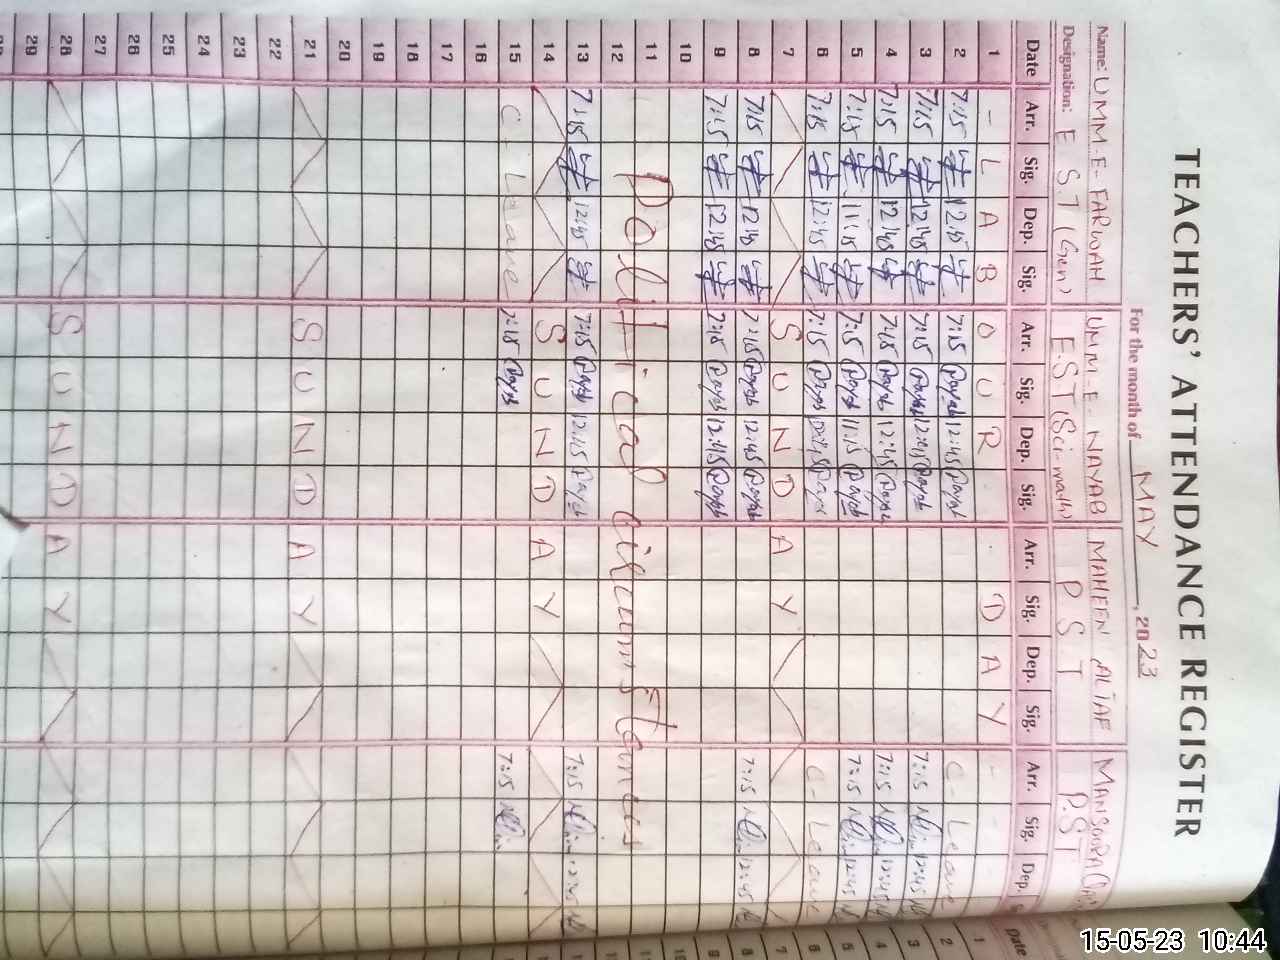 TEACHERS' ATTENDANCE REGISTER
For the month of MAY, 2023
Name: UMM-E-FARWAH UMM-E-NAYAB MAHEEN ALTAF MANSOORA
Designation: E S T (Gen) E.ST (Sci-math) P S T P.ST
Date Arr. Sig. Dep. Sig. Arr. Sig. Dep. Sig. Arr. Sig. Dep. Sig. Arr. Sig. Dep.
1 - L A B O U R D A Y - -
2 7:15 12:45 7:15 12:45 C- Leave
3 7:15 12:45 7:15 12:45 7:15 12:45
4 7:15 12:45 7:15 12:45 7:15 12:45
5 7:15 11:15 7:15 11:15 7:15 12:45
6 7:15 12:45 7:15 12:45 C- Leave
7 S U N D A Y
8 7:15 12:45 7:15 12:45 7:15 12:45
9 7:15 12:45 7:15 12:45
10
11 Political circumstances
12
13 7:15 12:45 7:15 12:45 7:15 12:45
14 S U N D A Y
15 C- Leave 7:15 7:15
16
17
18
19
20
21 S U N D A Y
22
23
24
25
26
27
28 S U N D A Y
29
Date
1
2
3
4
5
6
7
8
9
10
11
12
13
14
15-05-23 10:44